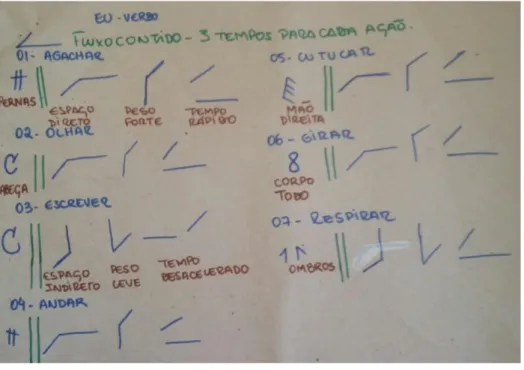 EU - VERBO
FLUXO CONTIDO - 3 TEMPOS PARA CADA AÇÃO.
01- AGACHAR
PERNAS
ESPAÇO DIRETO
PESO FORTE
TEMPO RÁPIDO
02- OLHAR
CABEÇA
03- ESCREVER
ESPAÇO INDIRETO
PESO LEVE
TEMPO DESACELERADO
04- ANDAR
05- CUTUCAR
MÃO DIREITA
06- GIRAR
CORPO TODO
07- RESPIRAR
OMBROS